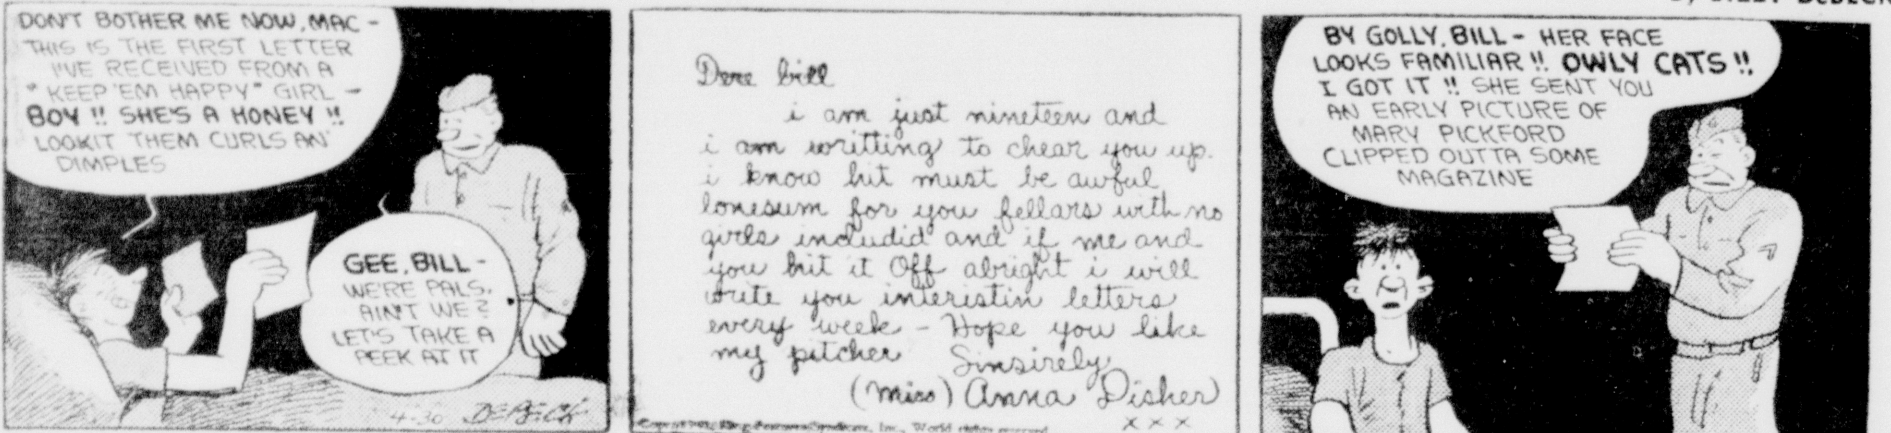 DON'T BOTHER ME NOW, MAC -
THIS IS THE FIRST LETTER
I'VE RECEIVED FROM A
"KEEP 'EM HAPPY" GIRL -
BOY !! SHE'S A HONEY !!
LOOKIT THEM CURLS AN'
DIMPLES
GEE, BILL -
WE'RE PALS,
AIN'T WE?
LET'S TAKE A
PEEK AT IT
4-30 DEBECK
Dere bill
i am just nineteen and
i am writting to chear you up.
i know hit must be awful
lonesum for you fellars with no
girls includid and if me and
you hit it Off abright i will
write you interistin letters
every week - Hope you like
my pitcher Sinsirely
(miss) Anna Disher
X X X
Inc., World rights reserved
BY GOLLY, BILL - HER FACE
LOOKS FAMILIAR !! OWLY CATS !!
I GOT IT !! SHE SENT YOU
AN EARLY PICTURE OF
MARY PICKFORD
CLIPPED OUTTA SOME
MAGAZINE